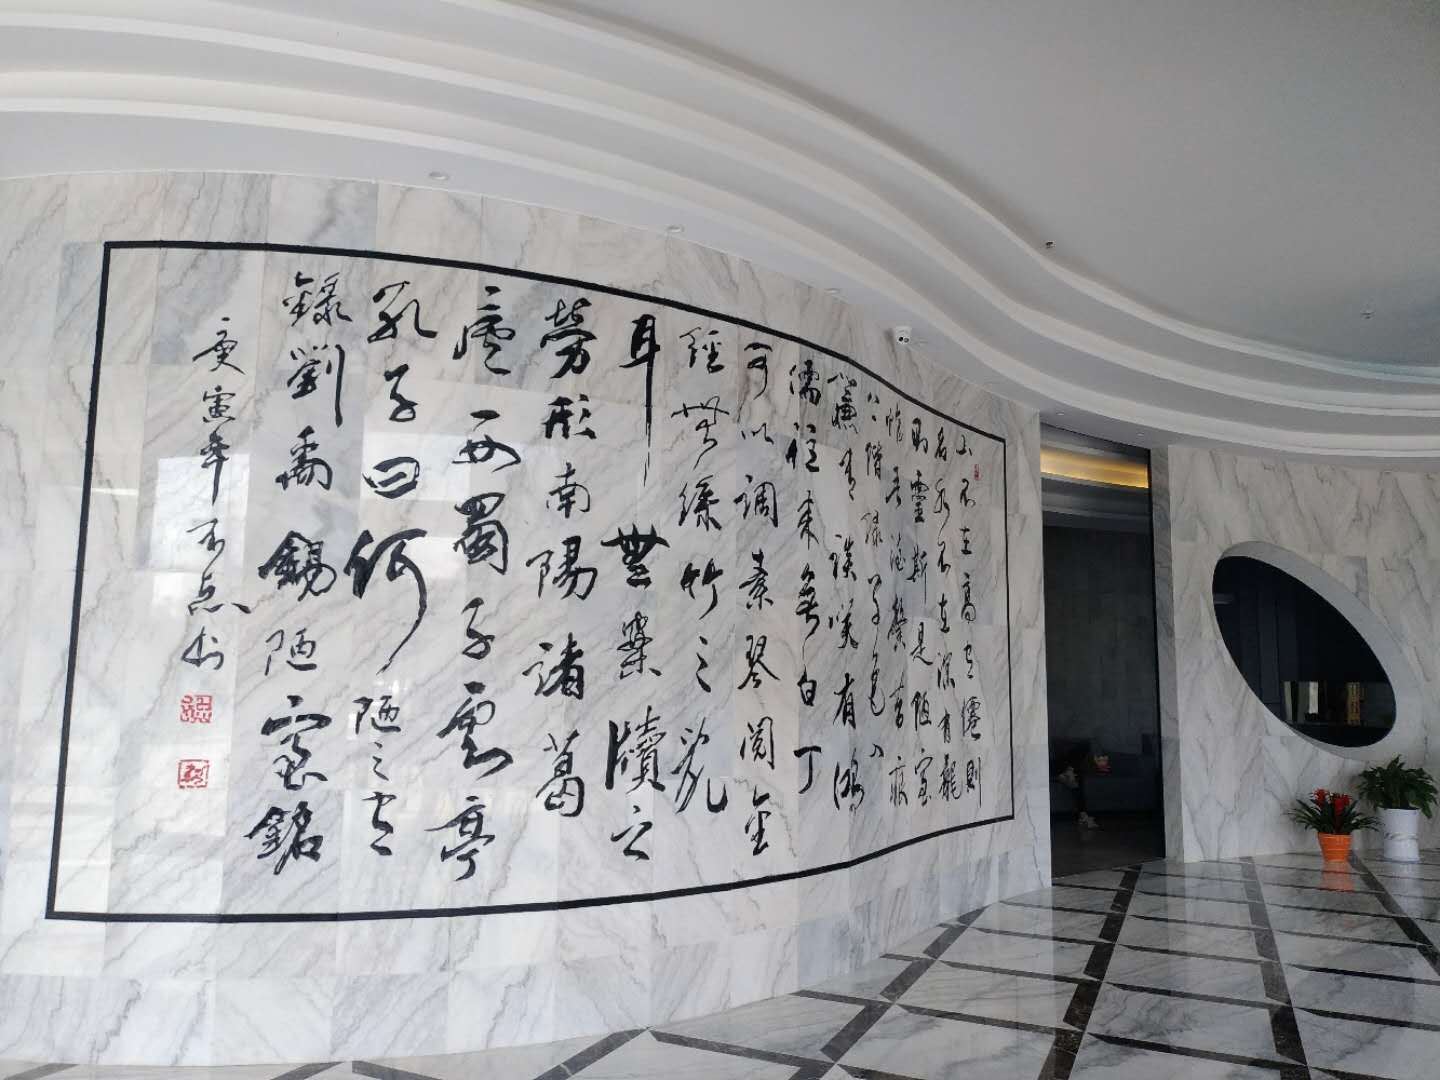 山不在高有僊則
名水不在深有龍
則靈斯是陋室
惟吾德馨苔痕
上階綠草色入
簾青談笑有鴻
儒往來無白丁
可以調素琴閱金
經無絲竹之亂
耳無案牘之
勞形南陽諸葛
廬西蜀子雲亭
孔子曰何陋之有
錄劉禹錫陋室銘
庚寅年